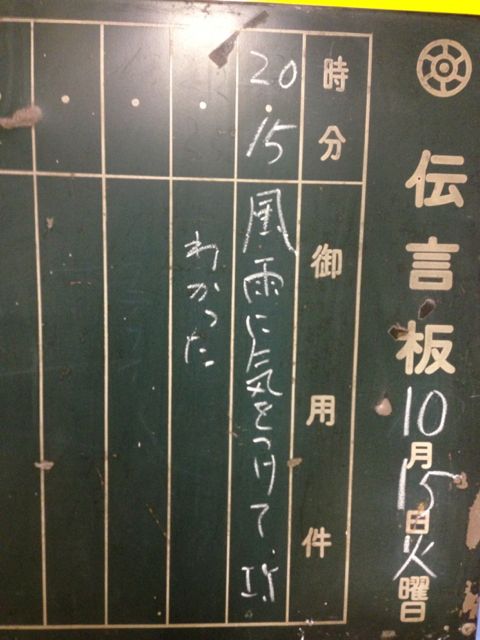 伝言板 10月15日火曜日
時分 御用件
20.15 風雨に気をつけて
わかった